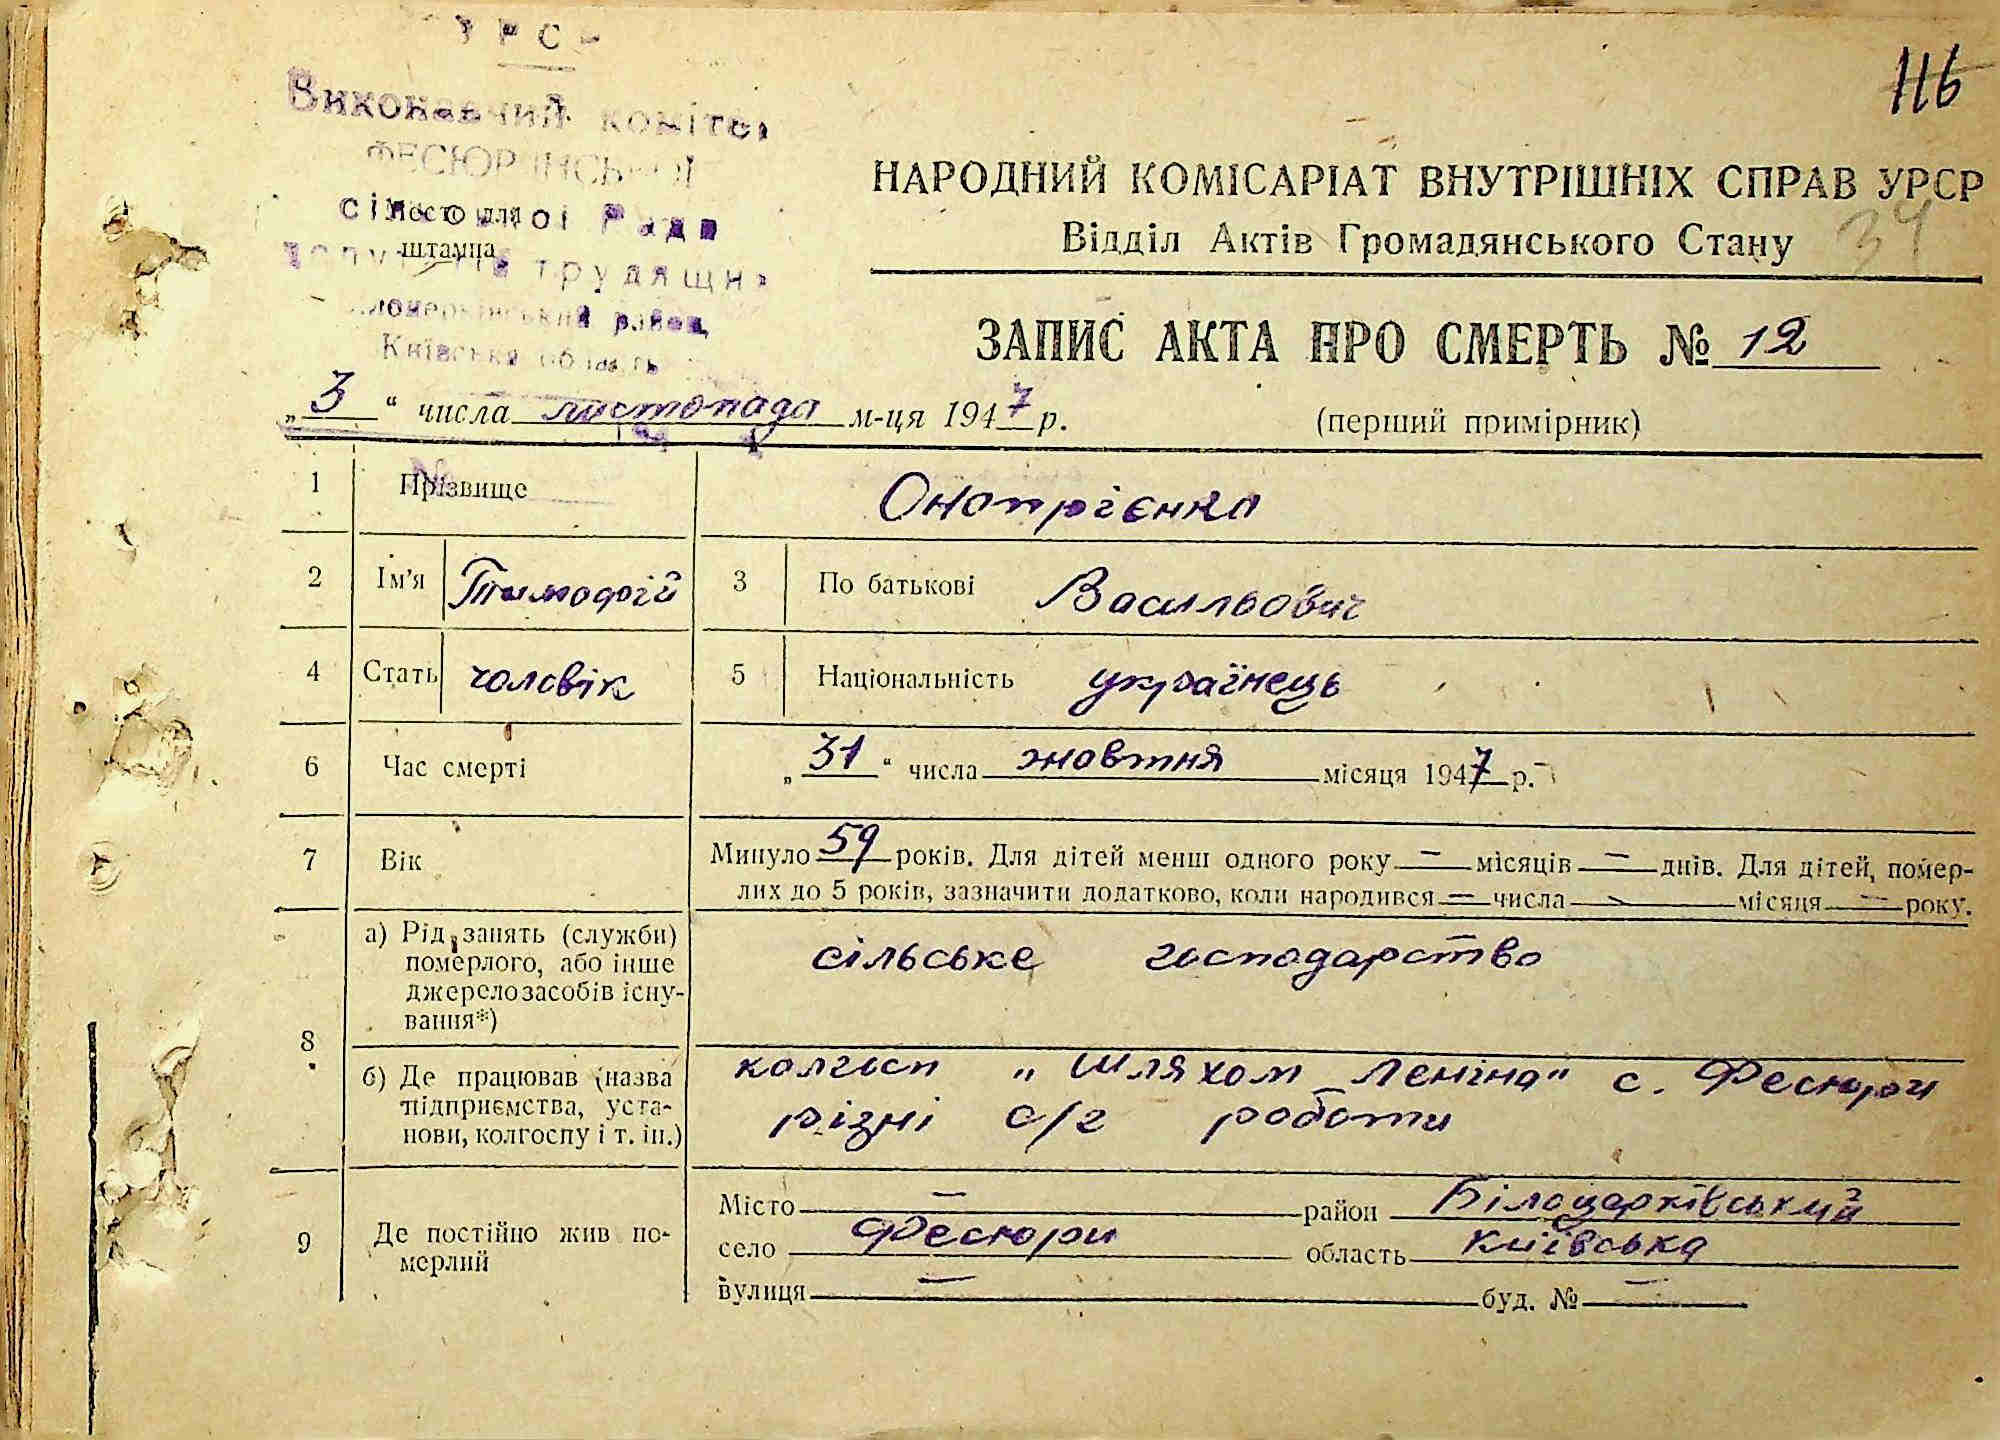 УРСР
116
Виконавчий комітет
ФЕСЮРІНСЬКОЇ
сільської Ради
Місце для
штампа
депутатів трудящих
Білоцерківський район
Київська область
НАРОДНИЙ КОМІСАРІАТ ВНУТРІШНІХ СПРАВ УРСР
Відділ Актів Громадянського Стану
34
ЗАПИС АКТА ПРО СМЕРТЬ № 12
„3“ числа листопада м-ця 1947 р.
(перший примірник)
1 Прізвище Онопрієнко
2 Ім'я Тимофій 3 По батькові Васильович
4 Стать чоловік 5 Національність українець
6 Час смерті „31“ числа жовтня місяця 1947 р.
7 Вік Минуло 59 років. Для дітей менш одного року — місяців — днів. Для дітей, помер-
лих до 5 років, зазначити додатково, коли народився — числа — місяця — року.
8
а) Рід занять (служби)
померлого, або інше
джерело засобів існу-
вання*)
сільське господарство
б) Де працював (назва
підприємства, уста-
нови, колгоспу і т. ін.)
колгосп „Шляхом Леніна“ с. Фесюри
різні с/г роботи
9 Де постійно жив по-
мерлий
Місто — район Білоцерківський
село Фесюри область Київська
вулиця — буд. № —